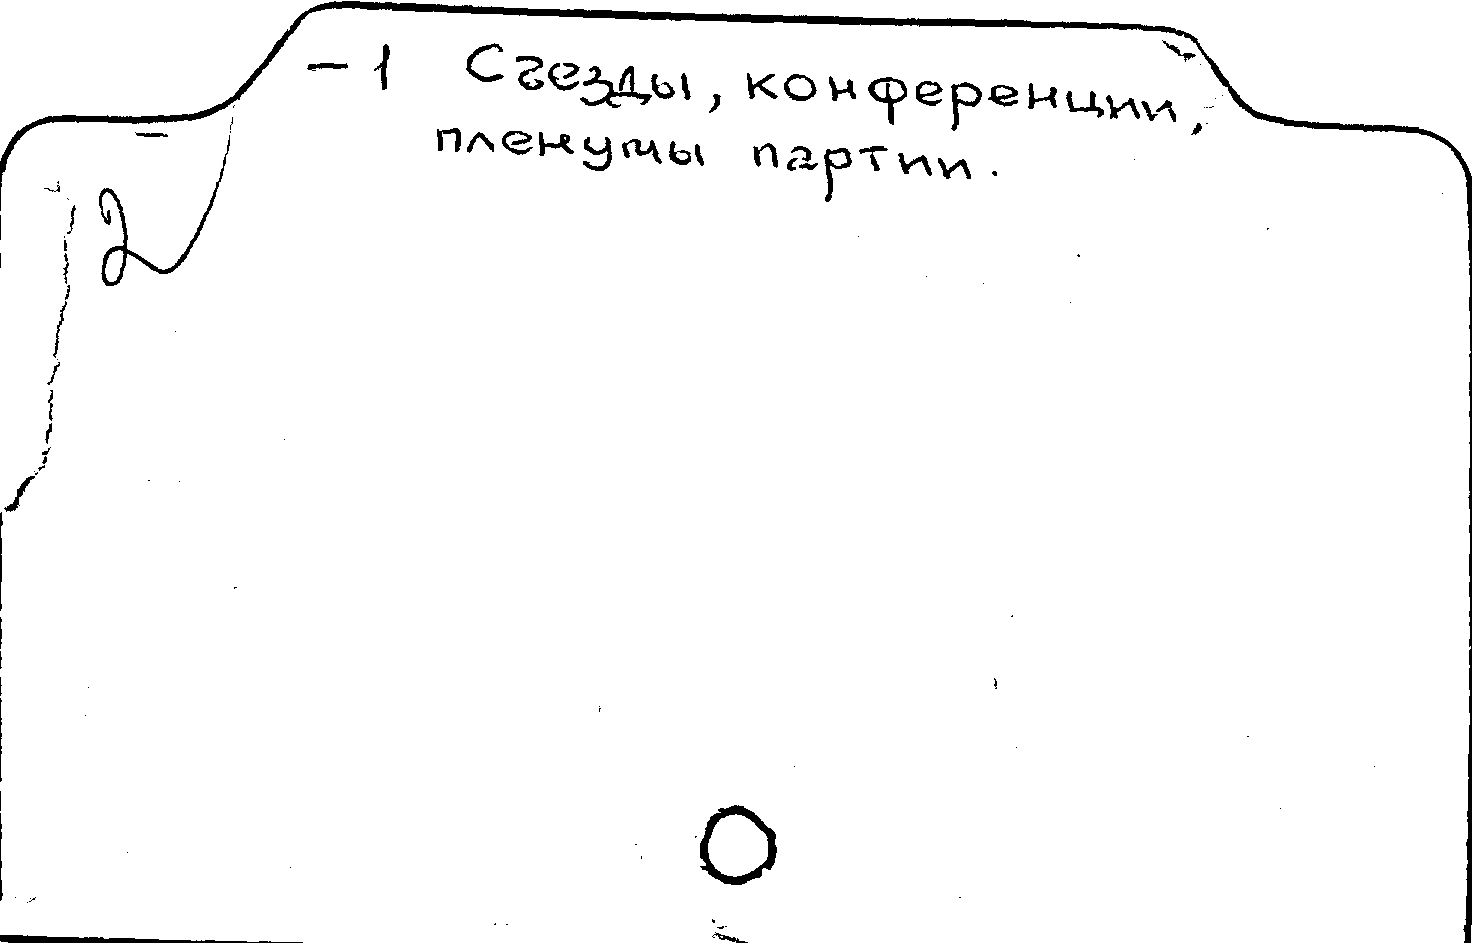 – 1 Съезды, конференции,
пленумы партии.
2